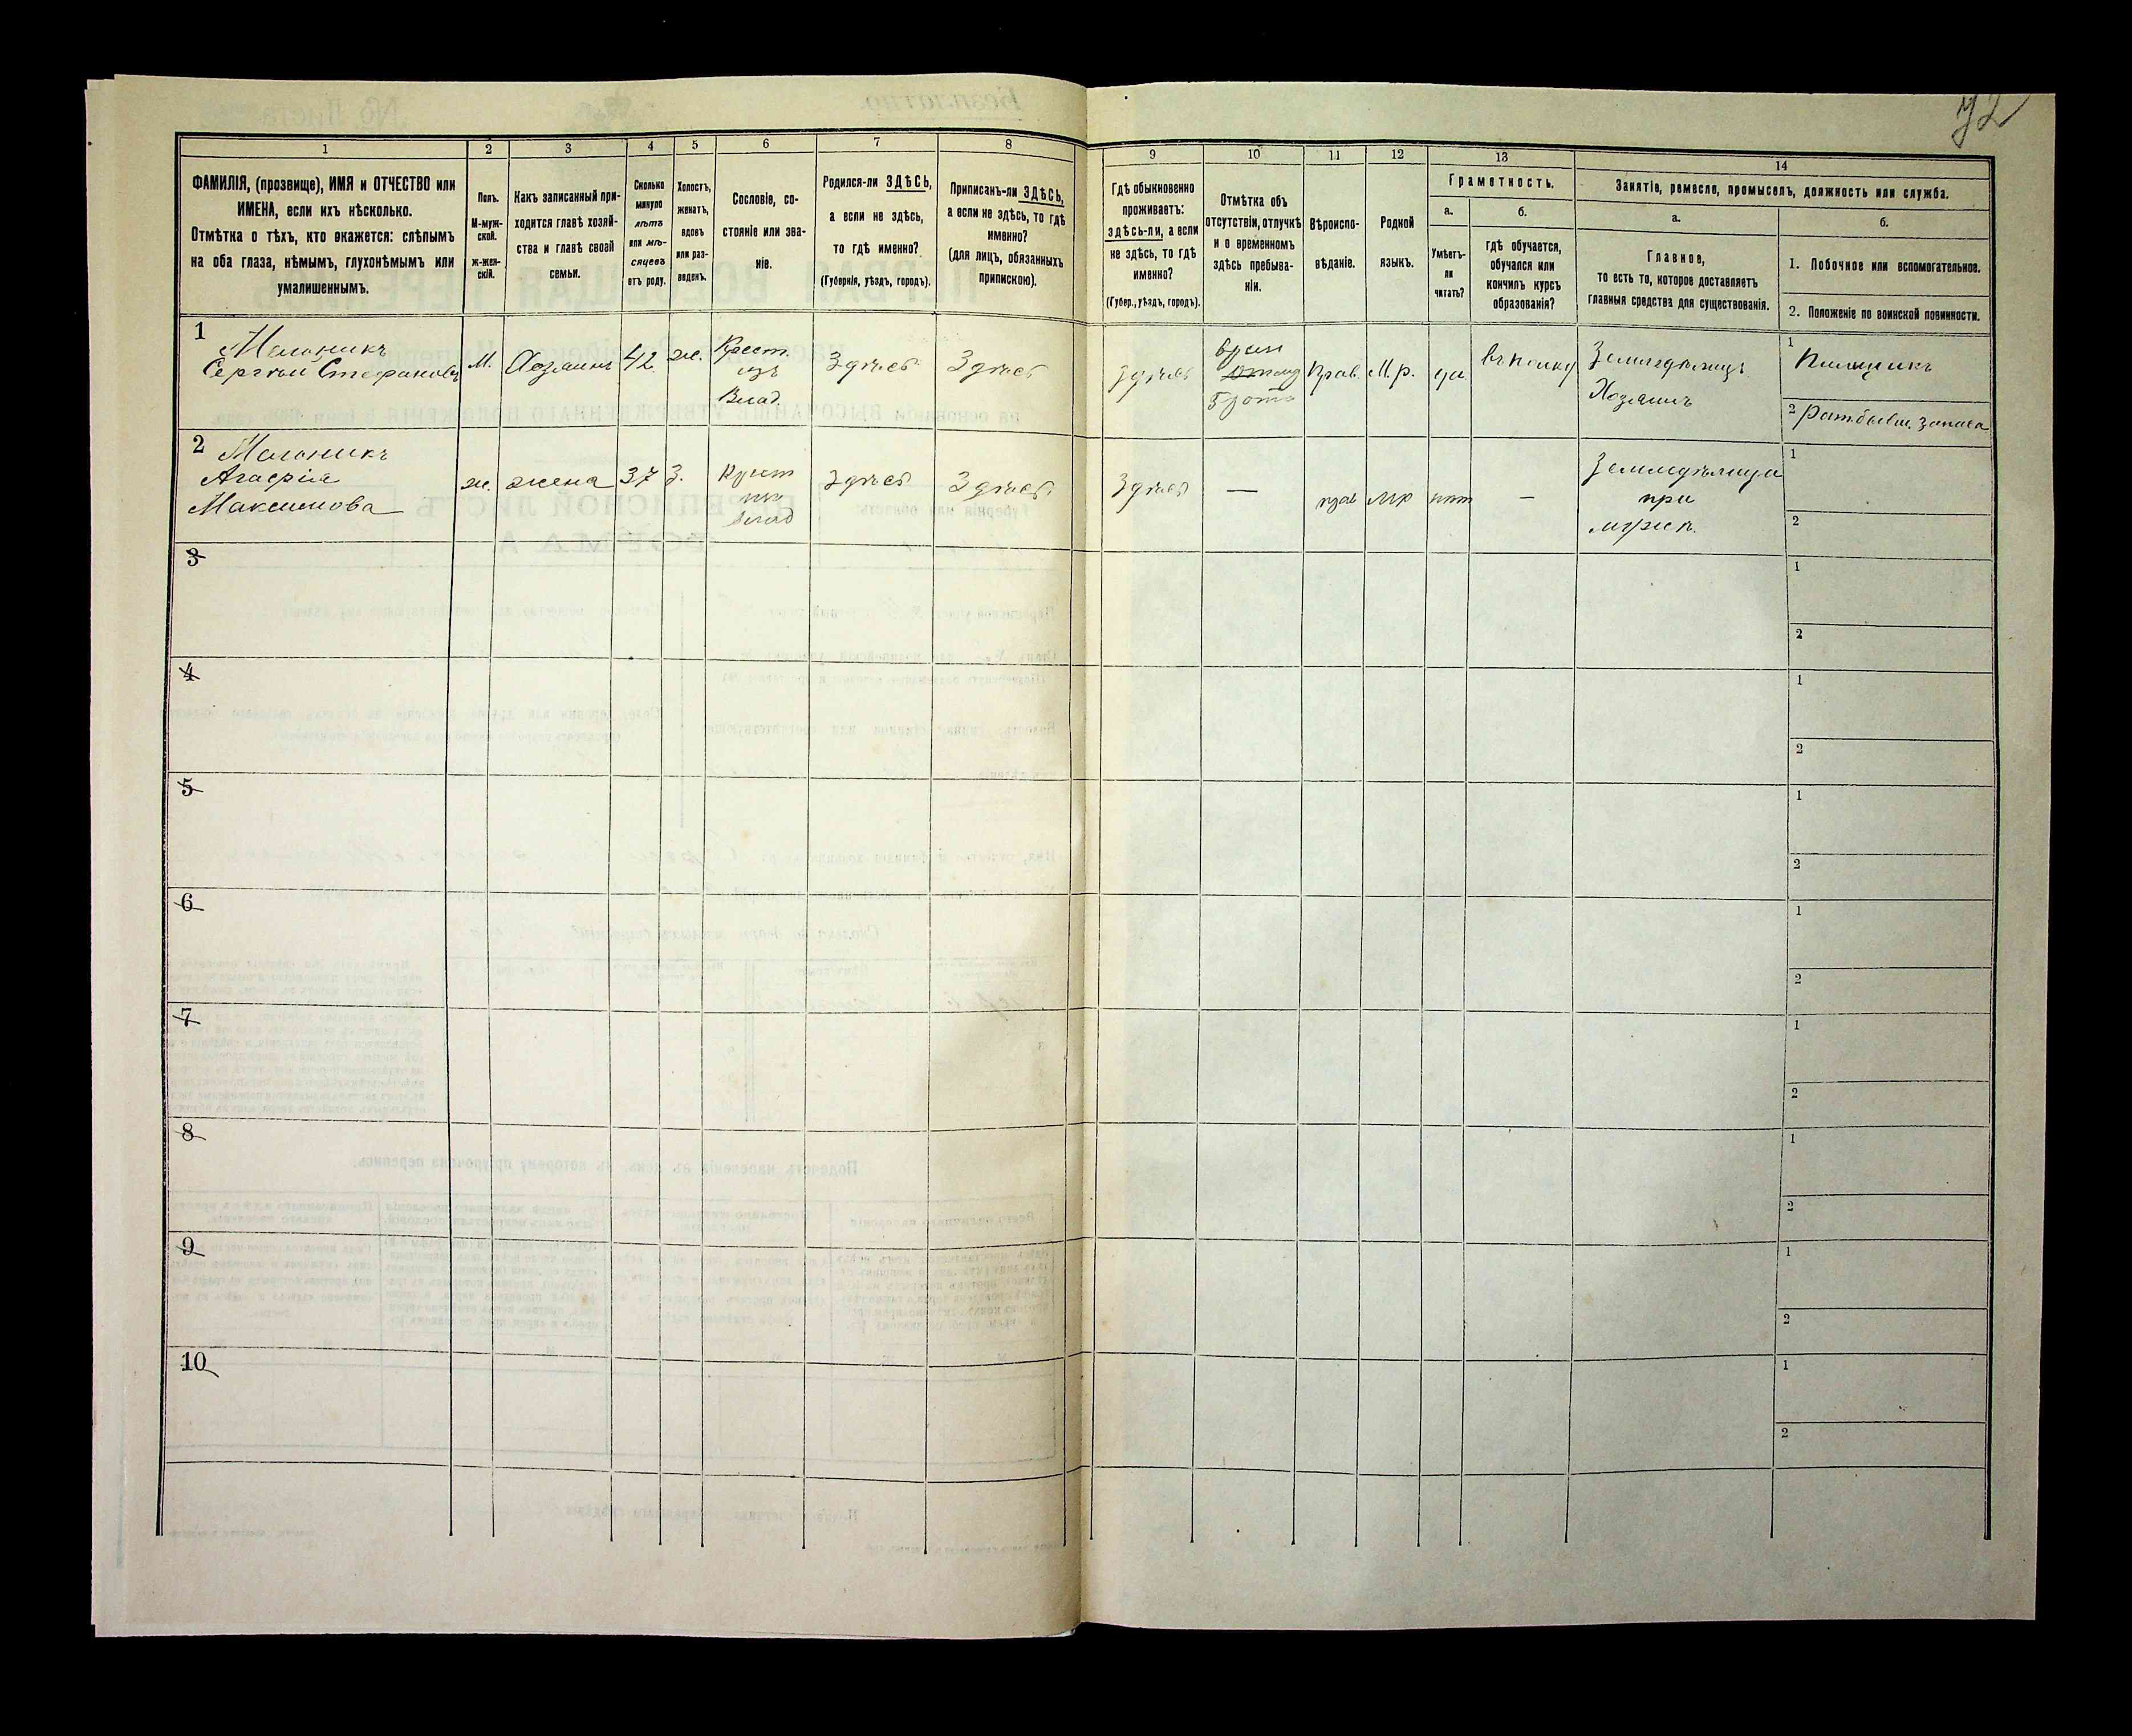 72
1
2
3
4
5
6
7
8
ФАМИЛІЯ, (прозвище), ИМЯ и ОТЧЕСТВО или
ИМЕНА, если ихъ нѣсколько.
Отмѣтка о тѣхъ, кто окажется: слѣпымъ
на оба глаза, нѣмымъ, глухонѣмымъ или
умалишеннымъ.
Полъ.
М-муж-
ской.
ж-жен-
скій.
Какъ записанный при-
ходится главѣ хозяй-
ства и главѣ своей
семьи.
Сколько
минуло
лѣтъ
или мѣ-
сяцевъ
отъ роду.
Холостъ,
женатъ,
вдовъ
или раз-
веденъ.
Сословіе, со-
стояніе или зва-
ніе.
Родился-ли ЗДѢСЬ,
а если не здѣсь,
то гдѣ именно?
(Губернія, уѣздъ, городъ).
Приписанъ-ли ЗДѢСЬ,
а если не здѣсь, то гдѣ
именно?
(для лицъ, обязанныхъ
припискою).
9
10
11
12
13
14
Гдѣ обыкновенно
проживаетъ:
здѣсь-ли, а если
не здѣсь, то гдѣ
именно?
(Губер., уѣздъ, городъ).
Отмѣтка объ
отсутствіи, отлучкѣ
и о временномъ
здѣсь пребыва-
ніи.
Вѣроиспо-
вѣданіе.
Родной
языкъ.
Грамотность.
а.
б.
Умѣетъ-
ли
читать?
гдѣ обучается,
обучался или
кончилъ курсъ
образованія?
Занятіе, ремесло, промыселъ, должность или служба.
а.
б.
Главное,
то есть то, которое доставляетъ
главныя средства для существованія.
1. Побочное или вспомогательное.
2. Положеніе по воинской повинности.
1
Мельникъ
Сергѣй Стефановъ
М.
Хозяинъ
42
ж.
Крест.
изъ
Влад.
Здѣсь
Здѣсь
Здѣсь
Прав.
М.р.
да
въ полку
Земледѣлецъ
Хозяинъ
1
Пильщикъ
2
запаса
2
Мельникъ
Агафія
Максимова
ж.
жена
37
З.
Крест
изъ
влад
Здѣсь
Здѣсь
Здѣсь
—
прав
мр
нѣт
—
Земледѣлица
при
мужѣ.
1
2
3
1
2
4
1
2
5
1
2
6
1
2
7
1
2
8
1
2
9
1
2
10
1
2